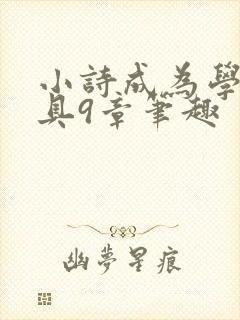 小詩成為學
具9章筆趣
幽夢星痕